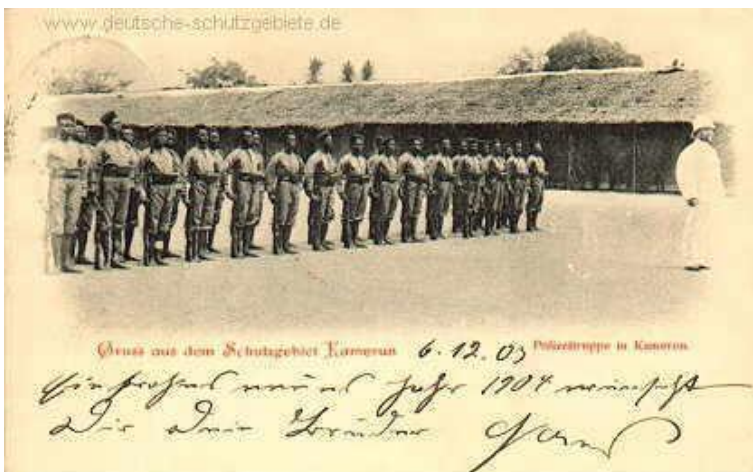 www.deutsche-schutzgebiete.de
Gruss aus dem Schutzgebiet Kamerun 6.12.03 Polizeitruppe in Kamerun.
Ein frohes neues Jahr 1904 wünscht
Dir Dein Bruder